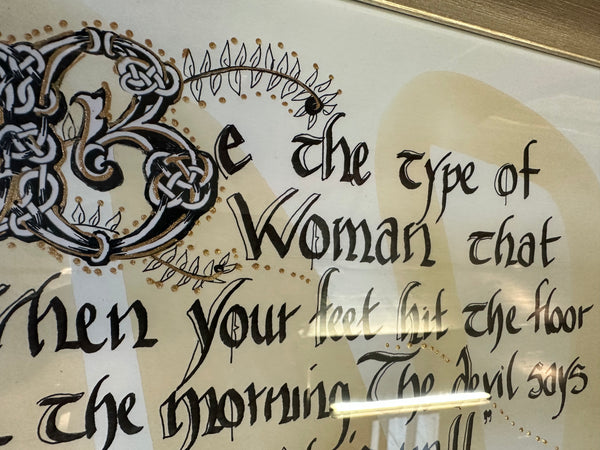 Be the type of
Woman that
When your feet hit the floor
the morning The devil says